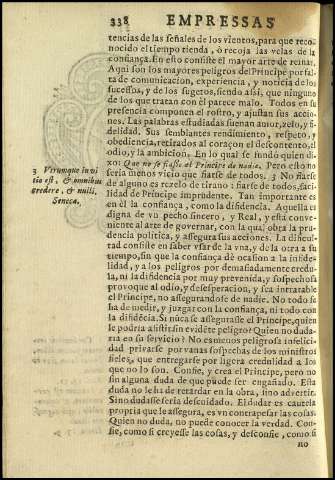 338 EMPRESSAS
tencias de las señales de los vientos, para que reco-
nocido el tiempo tienda, ò recoja las velas de la
confiança. En esto consiste el mayor arte de reinar.
Aqui son los mayores peligros del Principe por fal-
ta de comunicacion, experiencia, y noticia de los
sucessos, y de los sugetos, siendo assi, que ninguno
de los que tratan con èl parece malo. Todos en su
presencia componen el rostro, y ajustan sus accio-
nes. Las palabras estudiadas suenan amor, zelo, y fi-
delidad. Sus semblantes rendimiento, respeto, y
obediencia, retirados al coraçon el descontento, el
odio, y la ambicion. En lo qual se fundò quien di-
xo: Que no se fiasse el Principe de nadie. Pero esto no
seria menos vicio que fiarse de todos. 3 No fiarse
de alguno es rezelo de tirano: fiarse de todos, facili-
dad de Principe imprudente. Tan importante es
en èl la confiança, como la difidencia. Aquella es
digna de vn pecho sincero, y Real, y esta conve-
niente al arte de governar, con la qual obra la pru-
dencia politica, y assegura sus acciones. La dificul-
tad consiste en saber vsar de la vna, y de la otra a su
tiempo, sin que la confiança dè ocasion a la infide-
lidad, y a los peligros por demasiadamente credu-
la, ni la difidencia por muy prevenida, y sospechosa
provoque al odio, y desesperacion, y sea intratable
el Principe, no assegurandose de nadie. No todo se
ha de medir, y juzgar con la confiança, ni todo con
la difidẽcia. Si nunca se assegurasse el Principe, quien
le podria assistir sin evidẽte peligro? Quien no duda-
ria en su servicio? No es menos peligrosa infelici-
dad privarse por vanas sospechas de los ministros
fieles, que entregarse por ligera credulidad a los
que no lo son. Confie, y crea el Principe, pero no
sin alguna duda de que puede ser engañado. Esta
duda no le ha de retardar en la obra, sino advertir.
Sino dudasse seria descuidado. El dudar es cautela
propria que le assegura, es vn contrapesar las cosas.
Quien no duda, no puede conocer la verdad. Con-
fie, como si creyesse las cosas, y desconfie, como si
no
3 Verumque in vi
tia est, & omnibus
credere, & nulli,
Seneca.